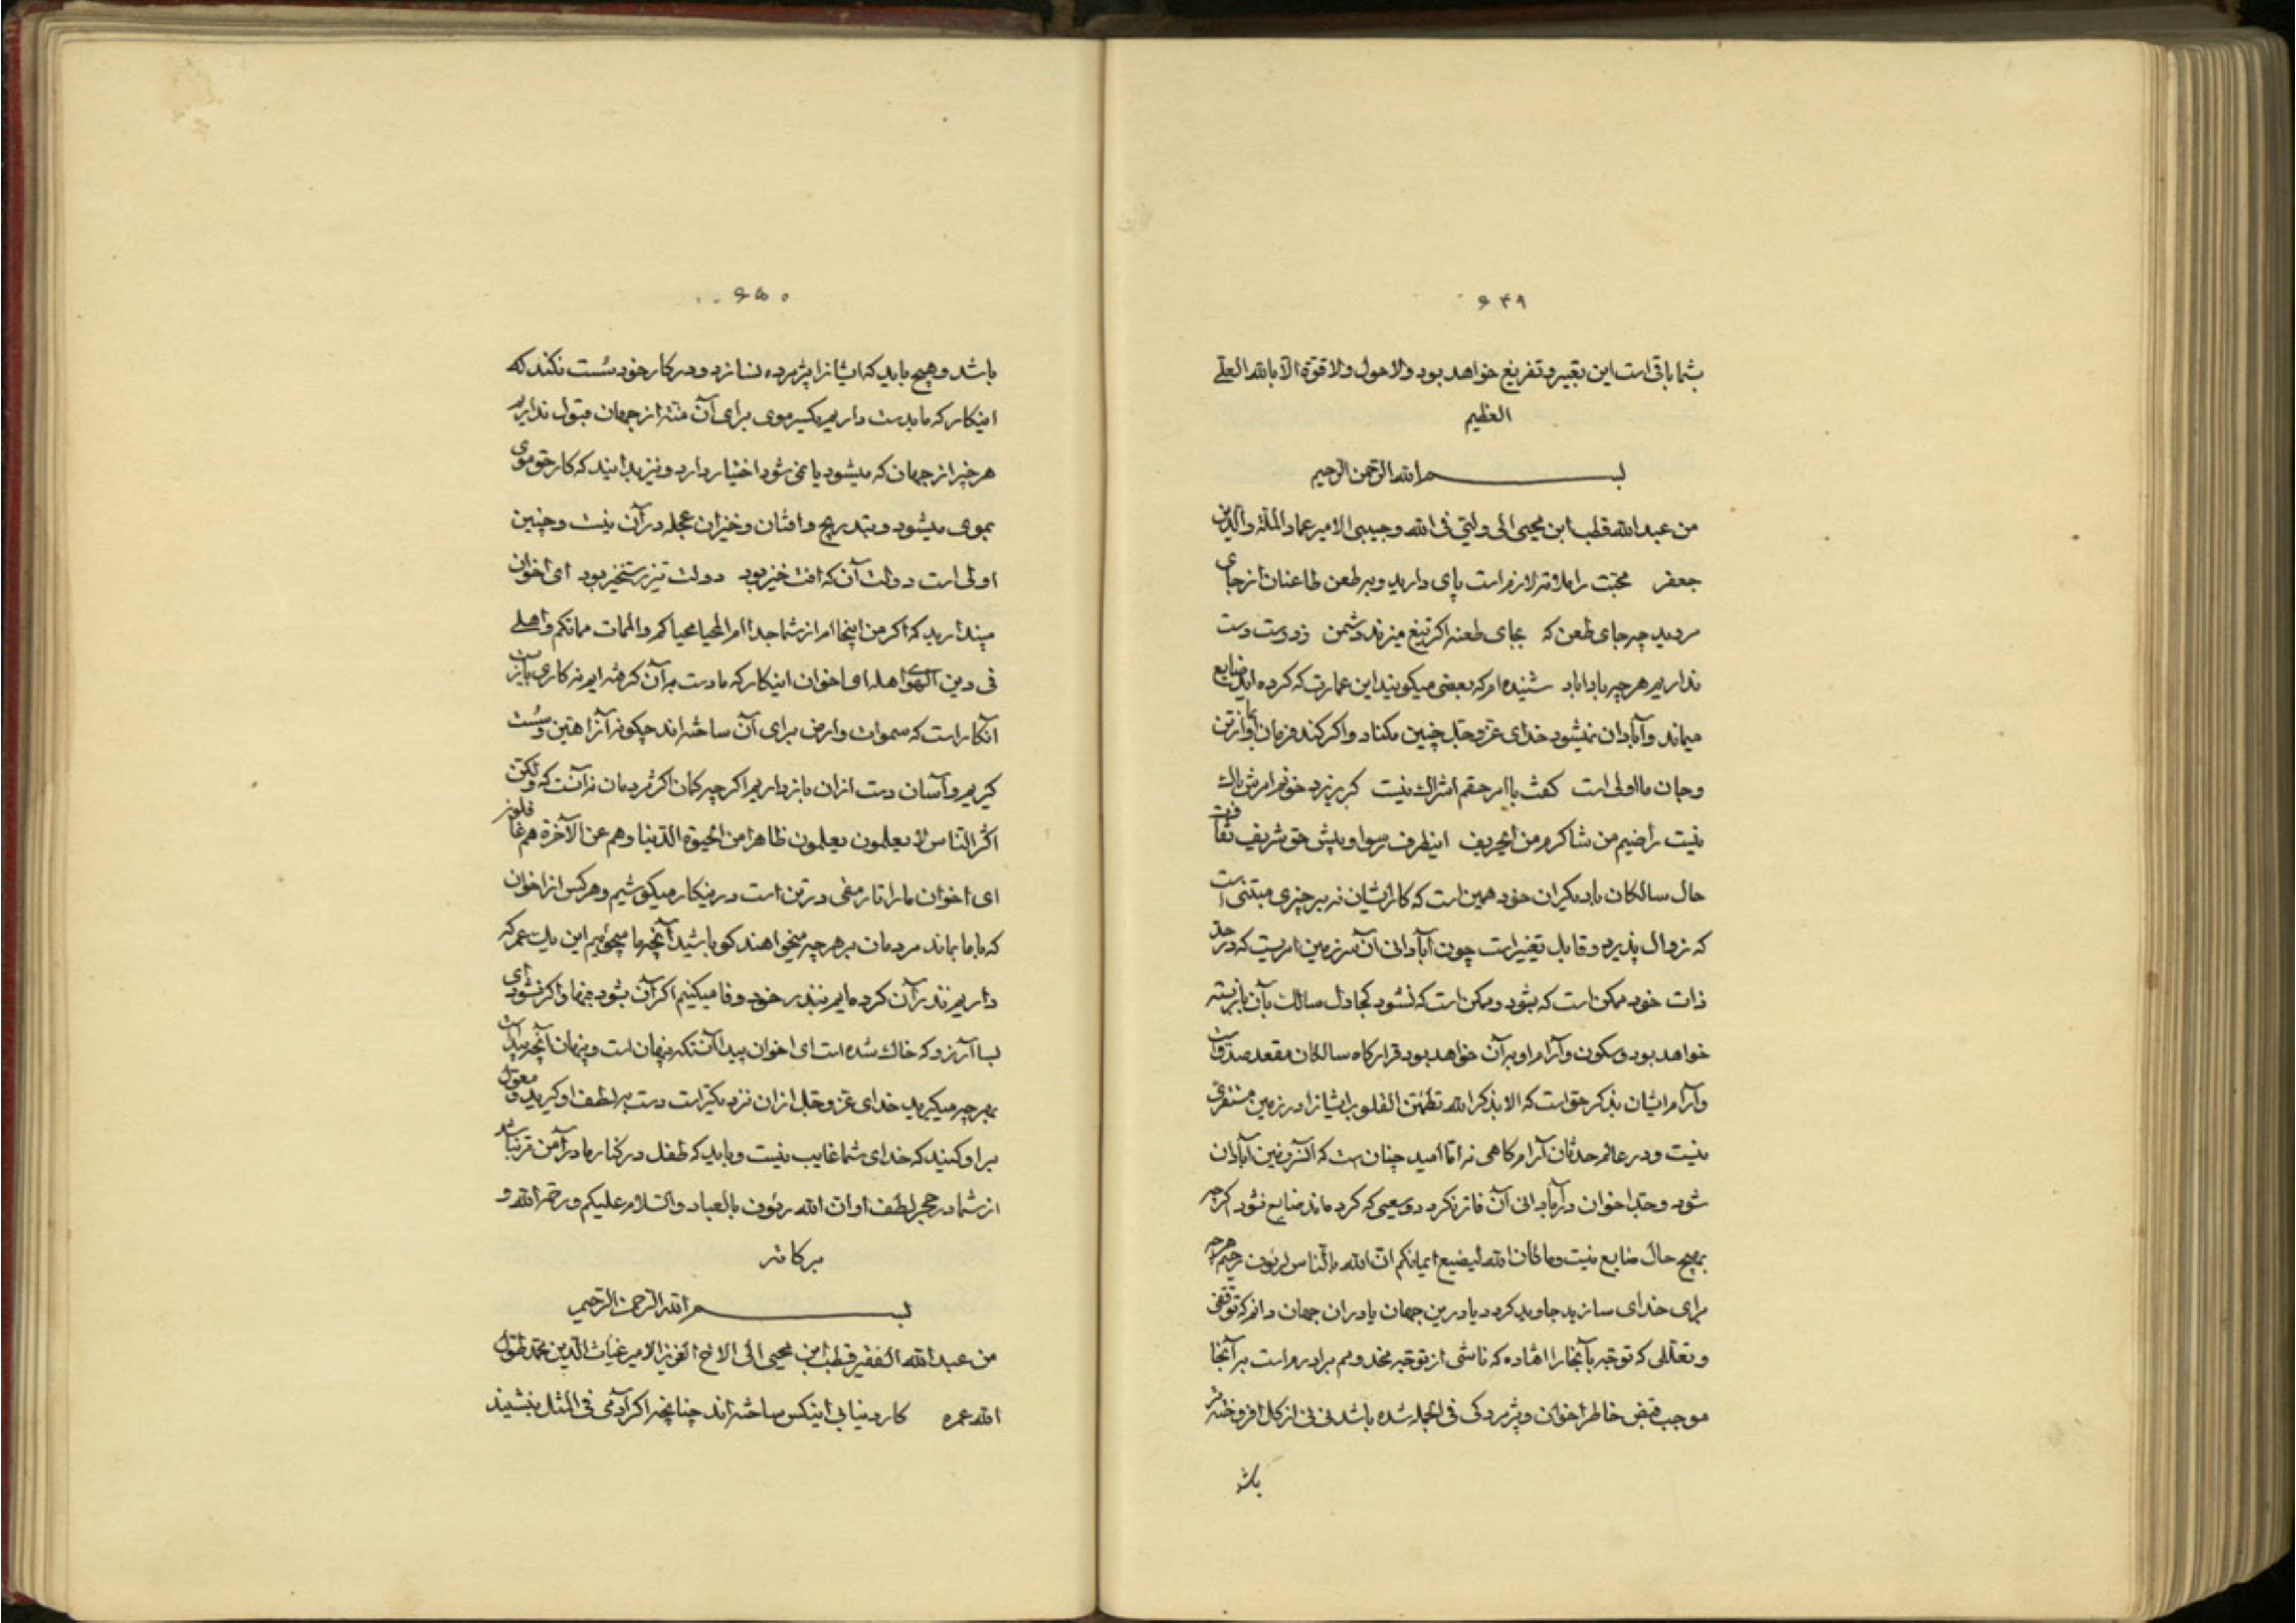 ۶۴۹
بشما باقی است این بقیه و تفریغ خواهد بود ولاحول ولا قوة الا بالله العلی
العظیم
بسم الله الرحمن الرحیم
من عبدالله قطب ابن محیی الی ولیی فی الله وحبیبی الامیر عماد الملة والدین
جعفر محبت را ملامت لازم است پای دارید و بر طعن طاعنان از جای
مروید چه جای طعن که بجای طعنه اکر تیغ میزند دشمن ز دوست دست
نداریم هرچه بادا باد شنیده ام که بعضی میکویند این عمارت که کرده اید ضایع
میماند و آبادان نمیشود خدای عز وجل چنین مکناد و اکر کند فرمان او از تن
وجان ما اولی است کفت باامر حقم اشراک نیست کر بریزد خونم امرش باک
نیست راضیم من شاکرم من ای حریف اینطرف رسوا و پیش حق شریف تفاوت
حال سالکان با دیکران خود همین است که کار ایشان نه بر چیزی مبتنی است
که زوال پذیرد و قابل تغییر است چون آبادانی آن سرزمین امریست که در حد
ذات خود ممکن است که بشود و ممکن است که نشود کجا دل سالک بآن بازبسته
خواهد بود و سکون و آرام او بر آن خواهد بود قرارکاه سالکان مقعد صدق است
و آرام ایشان بذکر حق است که الا بذکر الله تطمئن القلوب ایشانرا در زمین مستقری
نیست و در عالم حدثان آرامکاهی نه اما امید چنان است که آنسرزمین آبادان
شود وجد اخوان در آبادانی آن فاتر نکردد و سعیی که کرده ماند ضایع نشود اکرچه
بهیچ حال ضایع نیست وما کان الله لیضیع ایمانکم ان الله بالناس لرؤف رحیم هرچه
برای خدای سازید جاوید کردد یا درین جهان یا در ان جهان دانم که توقفی
و تعللی که توجه بآنجا را افتاده که ناشی از توجه مخدومم برادرم است بر آنجا
موجب قبض خاطر اخوان و پژمردکی فی الجمله شده باشد نی نی از کل افروخته تر
باشد
۶۵۰
باشد و هیچ باید که ایشانرا پژمرده نسازد و در کار خود سست نکند که
اینکار که ما بدست داریم یکسر موی برای آن منت از جهان قبول نداریم
هر چیز از جهان که میشود یا نمی شود اختیار دارد و نیز بدانید که کار حق موی
بموی میشود و بتدریج و افتان وخیزان عجله در آن نیست و چنین
اولی است دولت آن که افت خیز بود دولت تیز رستخیز بود ای اخوان
مپندارید که اکر من اینجاام از شما جداام المحیا محیاکم والممات مماتکم واهلی
فی دین الهوی اهله ای اخوان اینکار که ما دست بر آن کرفته ایم نه کار بازیست
آنکار است که سموات و ارض برای آن ساخته اند چکونه آنرا هین و سست
کیریم و آسان دست از ان باز داریم اکر چه کمان اکثر مردمان نه آنست که ولکن
اکثر الناس لا یعلمون یعلمون ظاهرا من الحیوة الدنیا وهم عن الآخرة هم غافلون
ای اخوان ما را تا رمقی در تن است در اینکار میکوشیم و هر کس از اخوان
که با ما بماند مردمان بر هر چه میخواهند کو باشید آنچه ما میجوئیم این یک عمر که
داریم نذر آن کرده ایم بنذر خود وفا میکنیم اکر آن بشود فبها و اکر نشود ای
بسا آرزو که خاک شده است ای اخوان پیدا آنکه پنهان است و پنهان آنچه پیداست
بهر چه میکیرید خدای عز وجل از ان نزدیکتر است دست بر لطف او کیرید و معول
بر او کنید که خدای شما غایب نیست و باید که طفل در کنار مادر آمن تر نباشد
از شما در حجر لطف او ان الله رئوف بالعباد والسلام علیکم ورحمة الله و
برکاته
بسم الله الرحمن الرحیم
من عبدالله الفقیر قطب ابن محیی الی الاخ العزیز الامیر غیاث الدین محمد طول
الله عمره کار دنیا بی اینکس ساخته اند چنانچه اکر آدمی فی المثل بنشیند